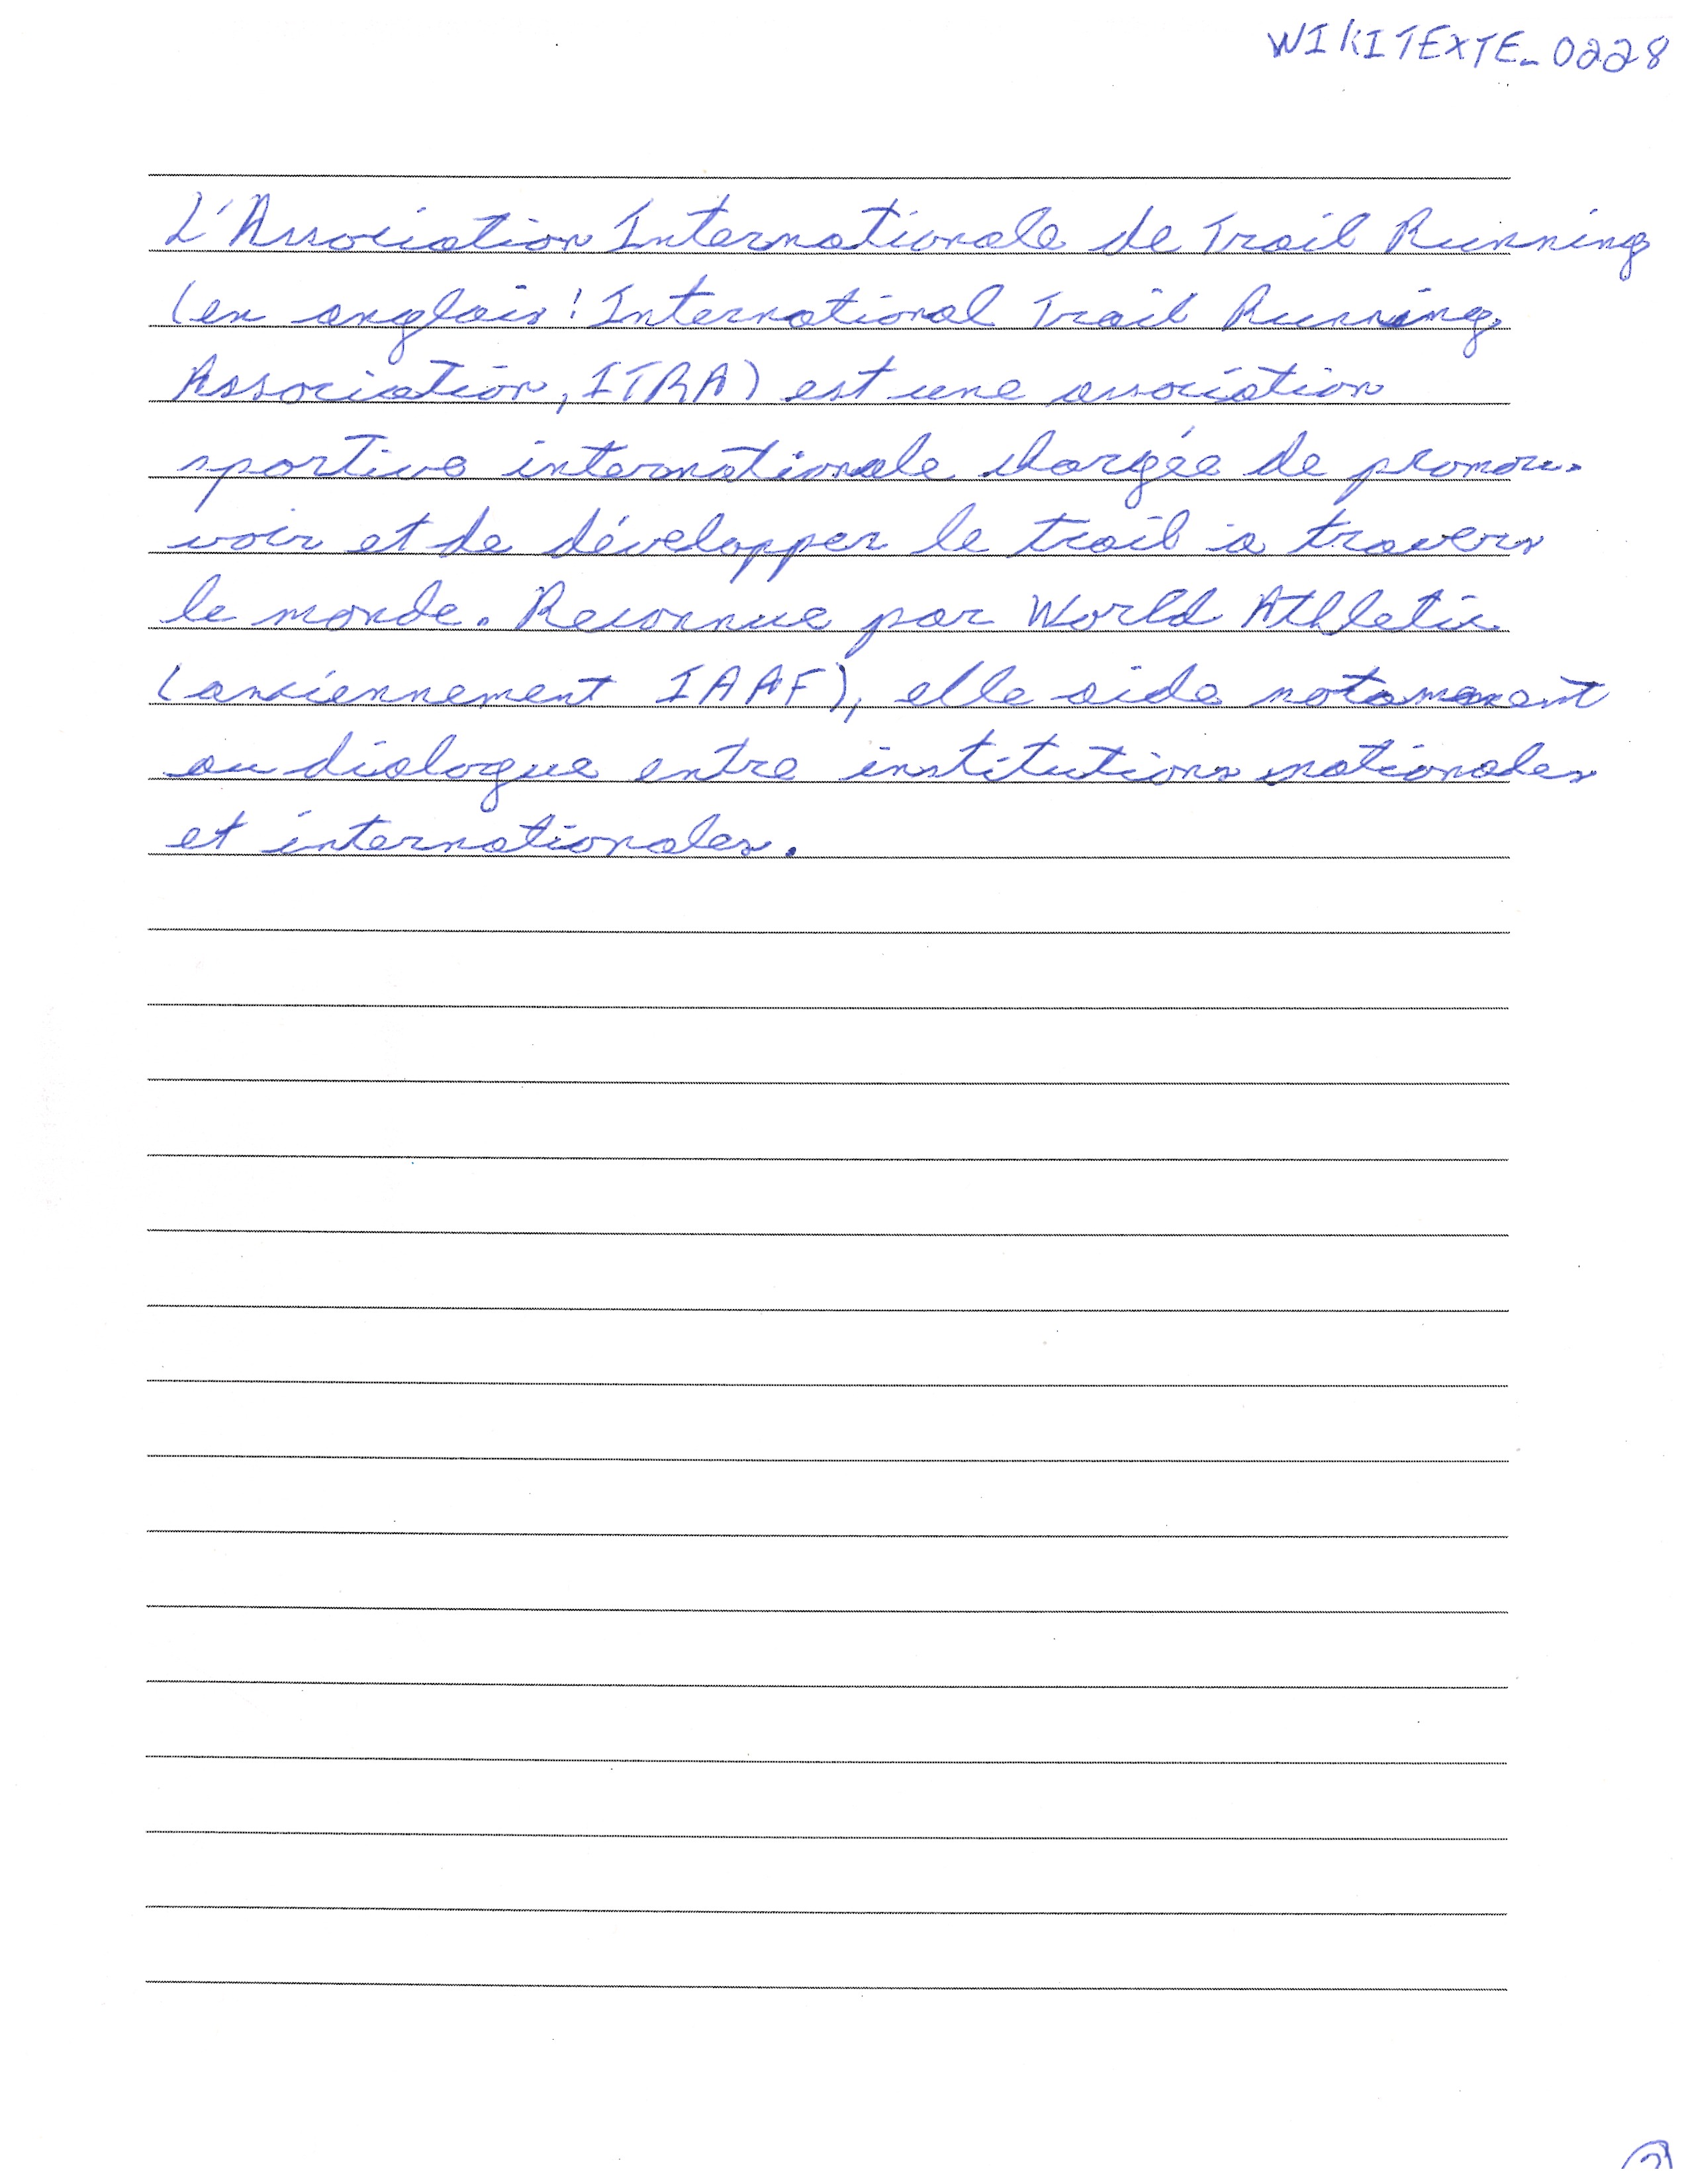 WIKITEXTE_0228
L'Association Internationale de Trail Running
(en anglais : International Trail Running
Association, ITRA) est une association
sportive internationale chargée de promou-
voir et de développer le trail à travers
le monde. Reconnue par World Athletic
(anciennement IAAF), elle aide notamment
au dialogue entre institutions nationales
et internationales.